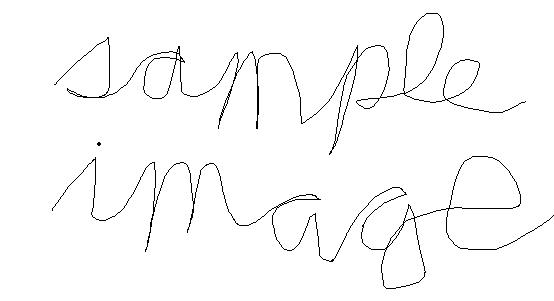 sample
image